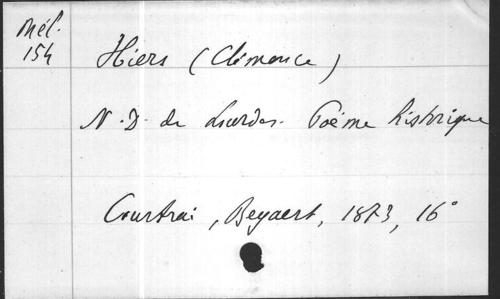 Mél.
154
Hiers (Clémence)
N. D. de Lourdes. Poëme historique
Courtrai, Beyaert, 1873, 16°